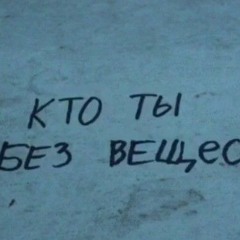 КТО ТЫ
БЕЗ ВЕЩЕС